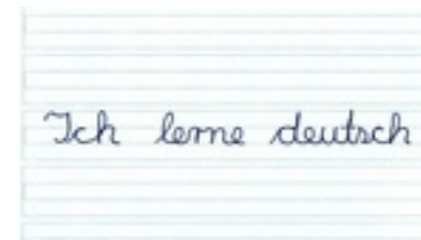 Ich lerne deutsch